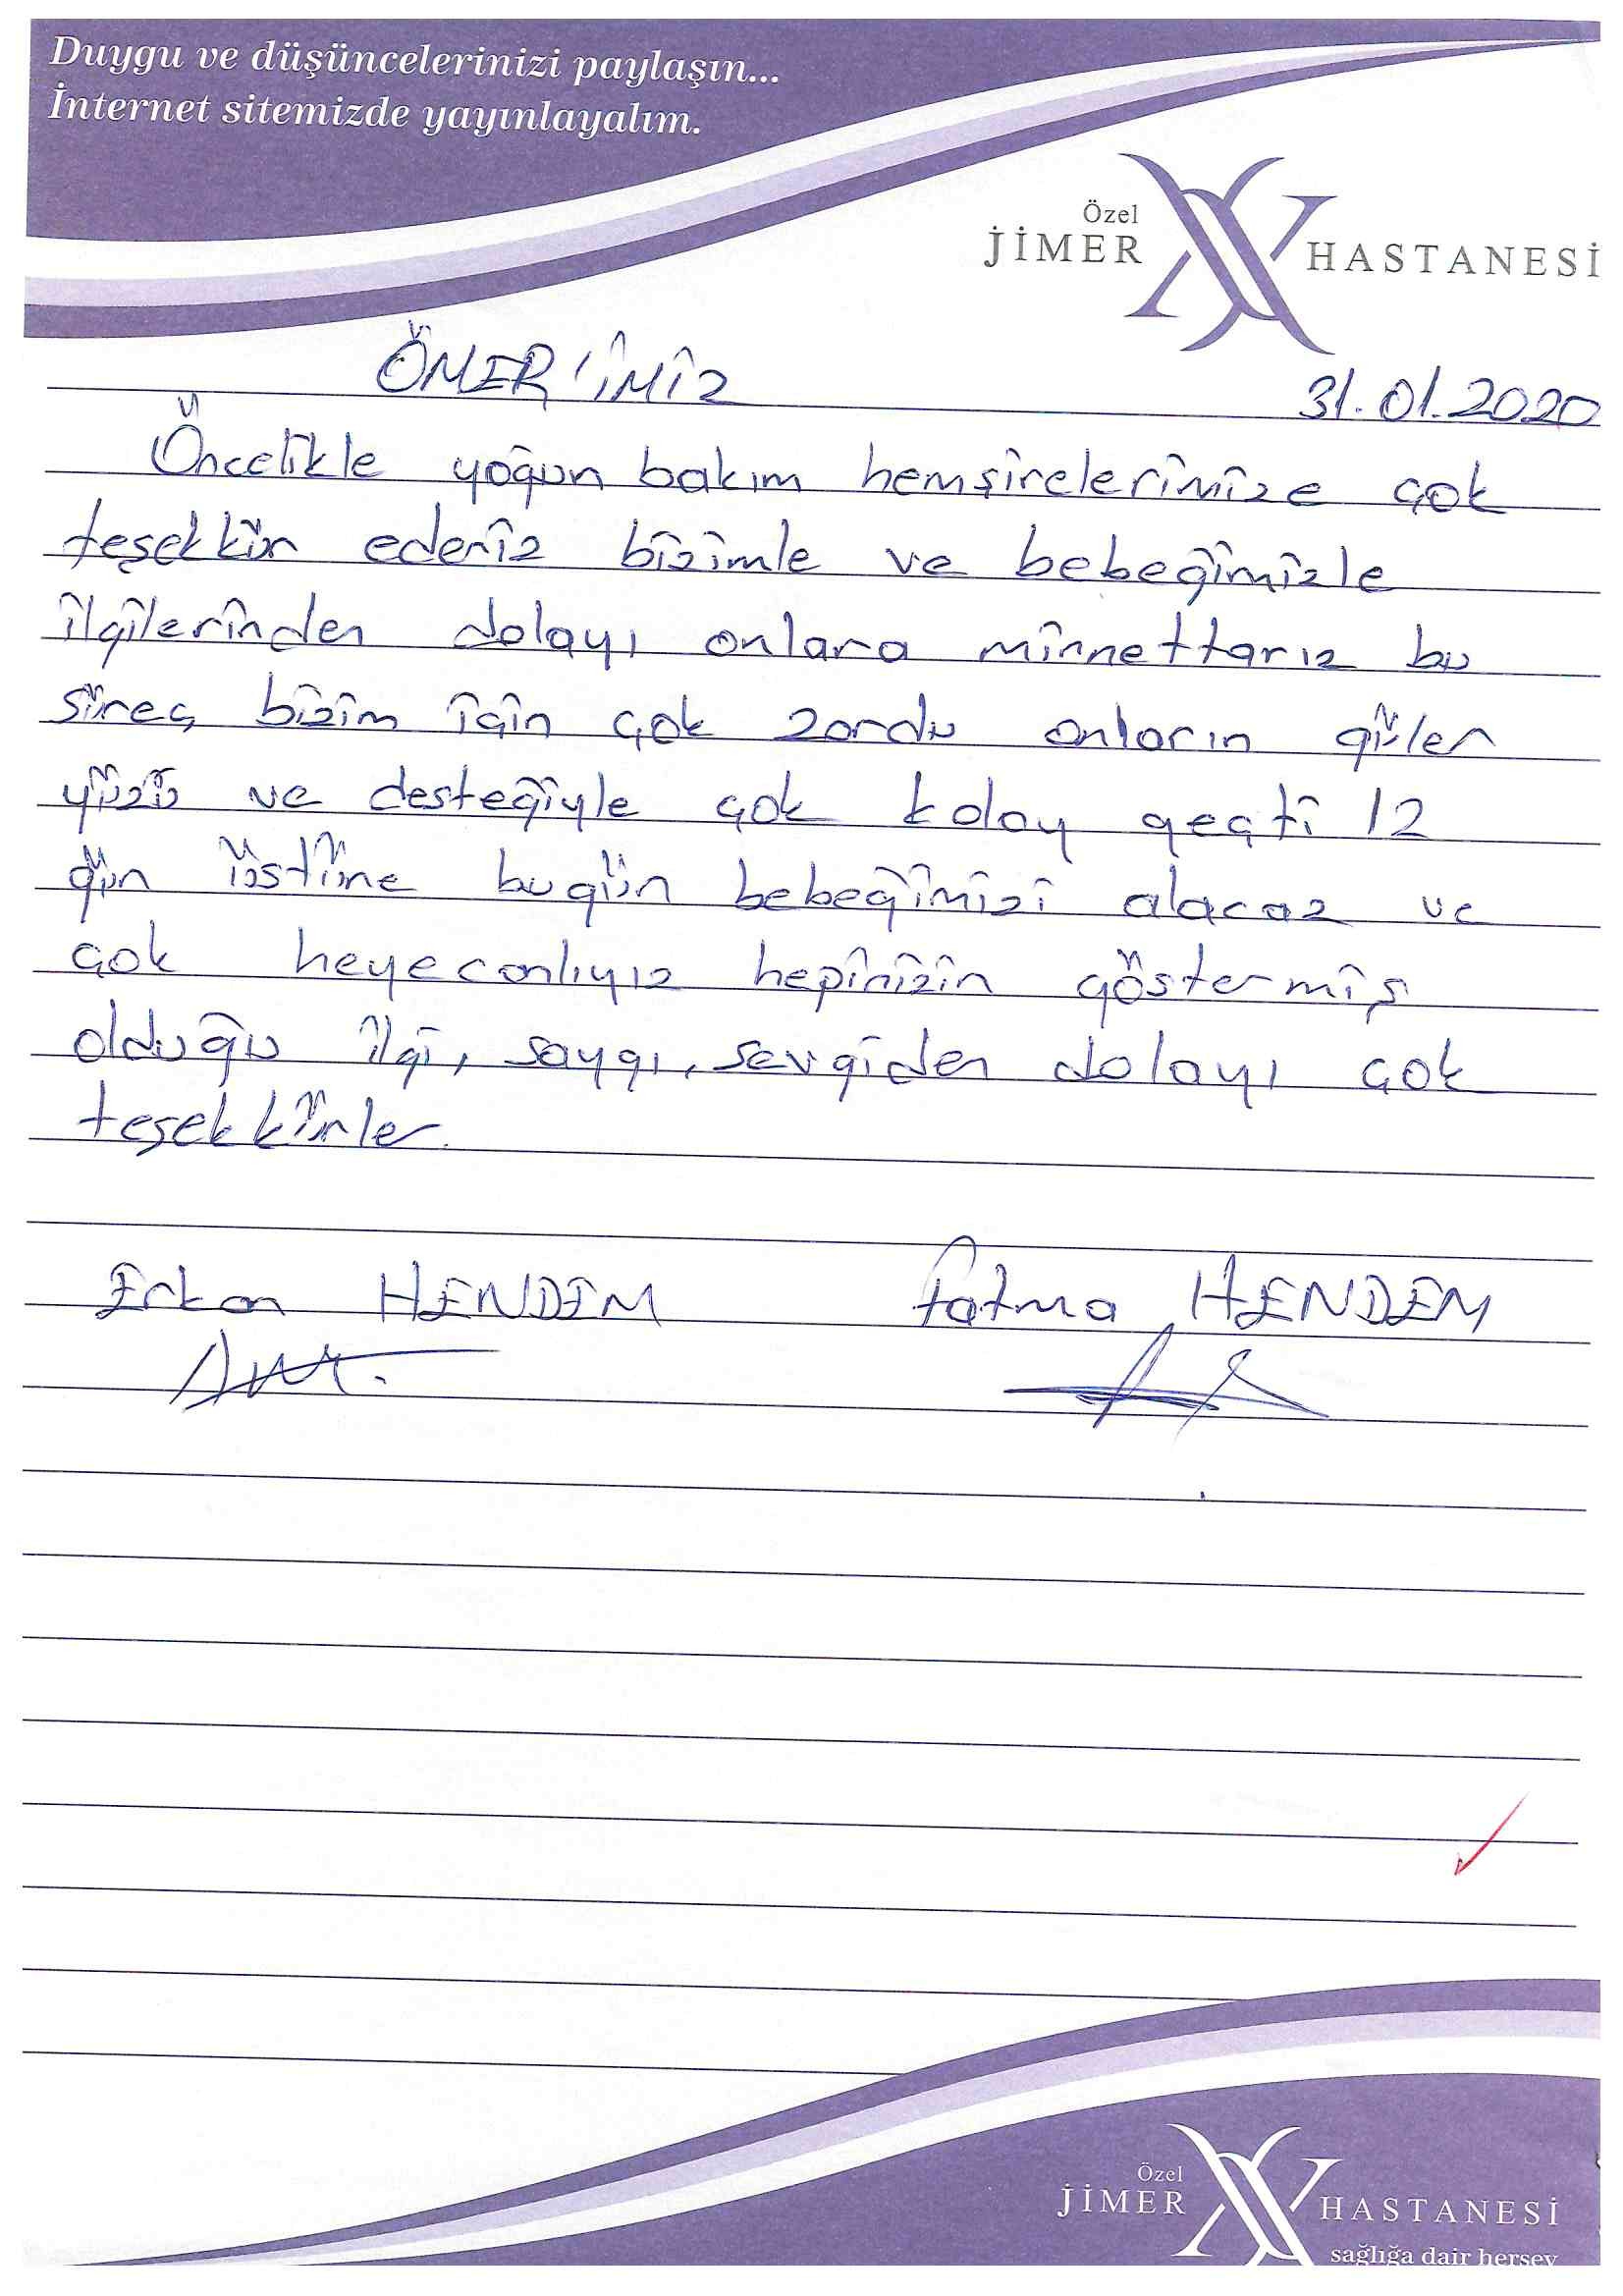 Duygu ve düşüncelerinizi paylaşın...
İnternet sitemizde yayınlayalım.
Özel
JİMER HASTANESİ
ÖMER'İMİZ
31.01.2020
Öncelikle yoğun bakım hemşirelerimize çok
teşekkür ederiz bizimle ve bebeğimizle
ilgilerinden dolayı onlara minnettarız bu
süreç bizim için çok zordu onların güler
yüzü ve desteğiyle çok kolay geçti 12
gün üstüne bugün bebeğimizi alacaz ve
çok heyecanlıyız hepinizin göstermiş
olduğu ilgi, saygı, sevgiden dolayı çok
teşekkürler.
Erkan HENDEM Fatma HENDEM
Özel
JİMER HASTANESİ
sağlığa dair herşey